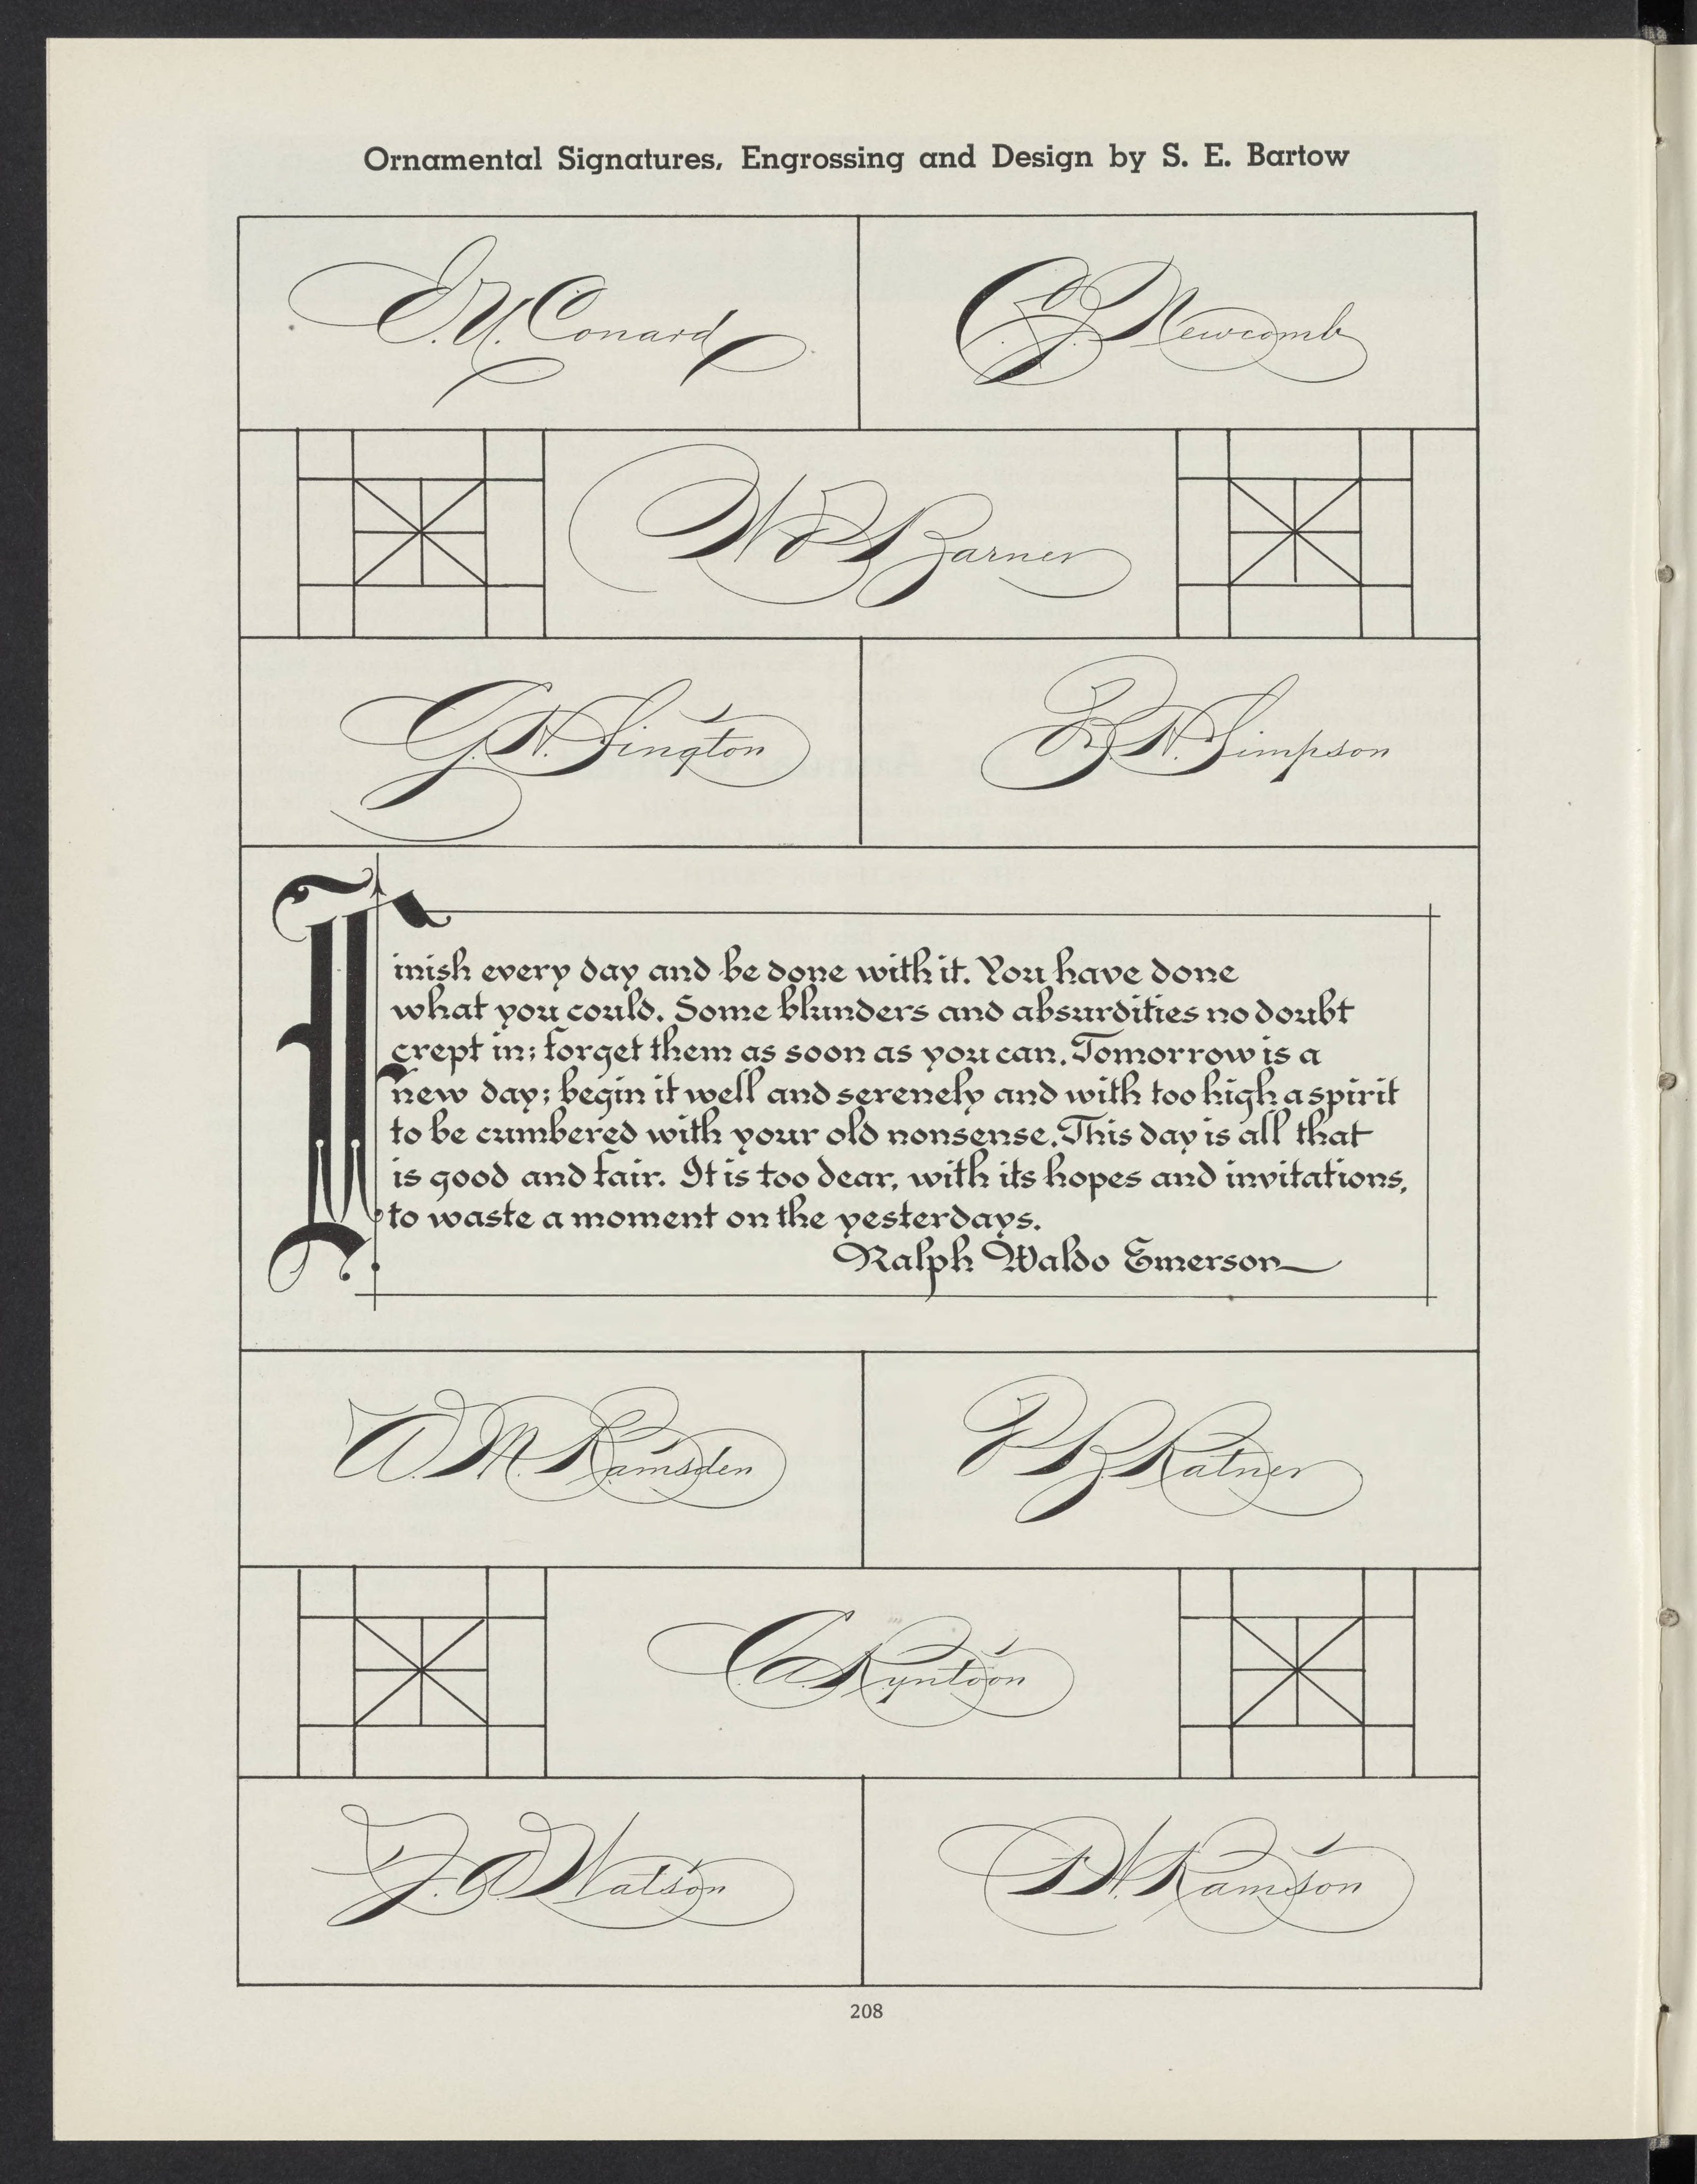 Ornamental Signatures, Engrossing and Design by S. E. Bartow
E. U. Conard
C. J. Newcomb
W P Barner
G. N. Sington
B. N. Simpson
Finish every day and be done with it. You have done
what you could. Some blunders and absurdities no doubt
crept in; forget them as soon as you can. Tomorrow is a
new day; begin it well and serenely and with too high a spirit
to be cumbered with your old nonsense. This day is all that
is good and fair. It is too dear, with its hopes and invitations,
to waste a moment on the yesterdays.
Ralph Waldo Emerson
W. M. Ramsden
P B Ratner
C. A. Ryntoon
F. A. Watson
Ramson
208